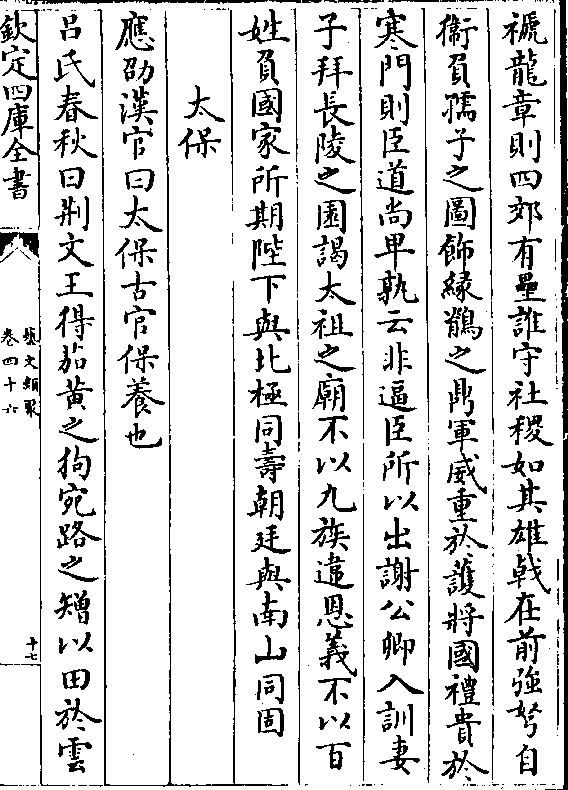 褫龍章則四郊有壘誰守社稷如其雄㦸在前強弩自
衞負孺子之圖飾縁鵲之鼎軍威重於護將國禮貴於
寒門則臣道尚卑孰云非逼臣所以出謝公卿入訓妻
子拜長陵之園謁太祖之廟不以九族違恩義不以百
姓負國家所期陛下與北極同壽朝廷與南山同固
太保
應劭漢官曰太保古官保養也
吕氏春秋曰荆文王得茹黄之狗宛路之矰以田於雲
欽定四庫全書
藝文類聚
卷四十六
十七